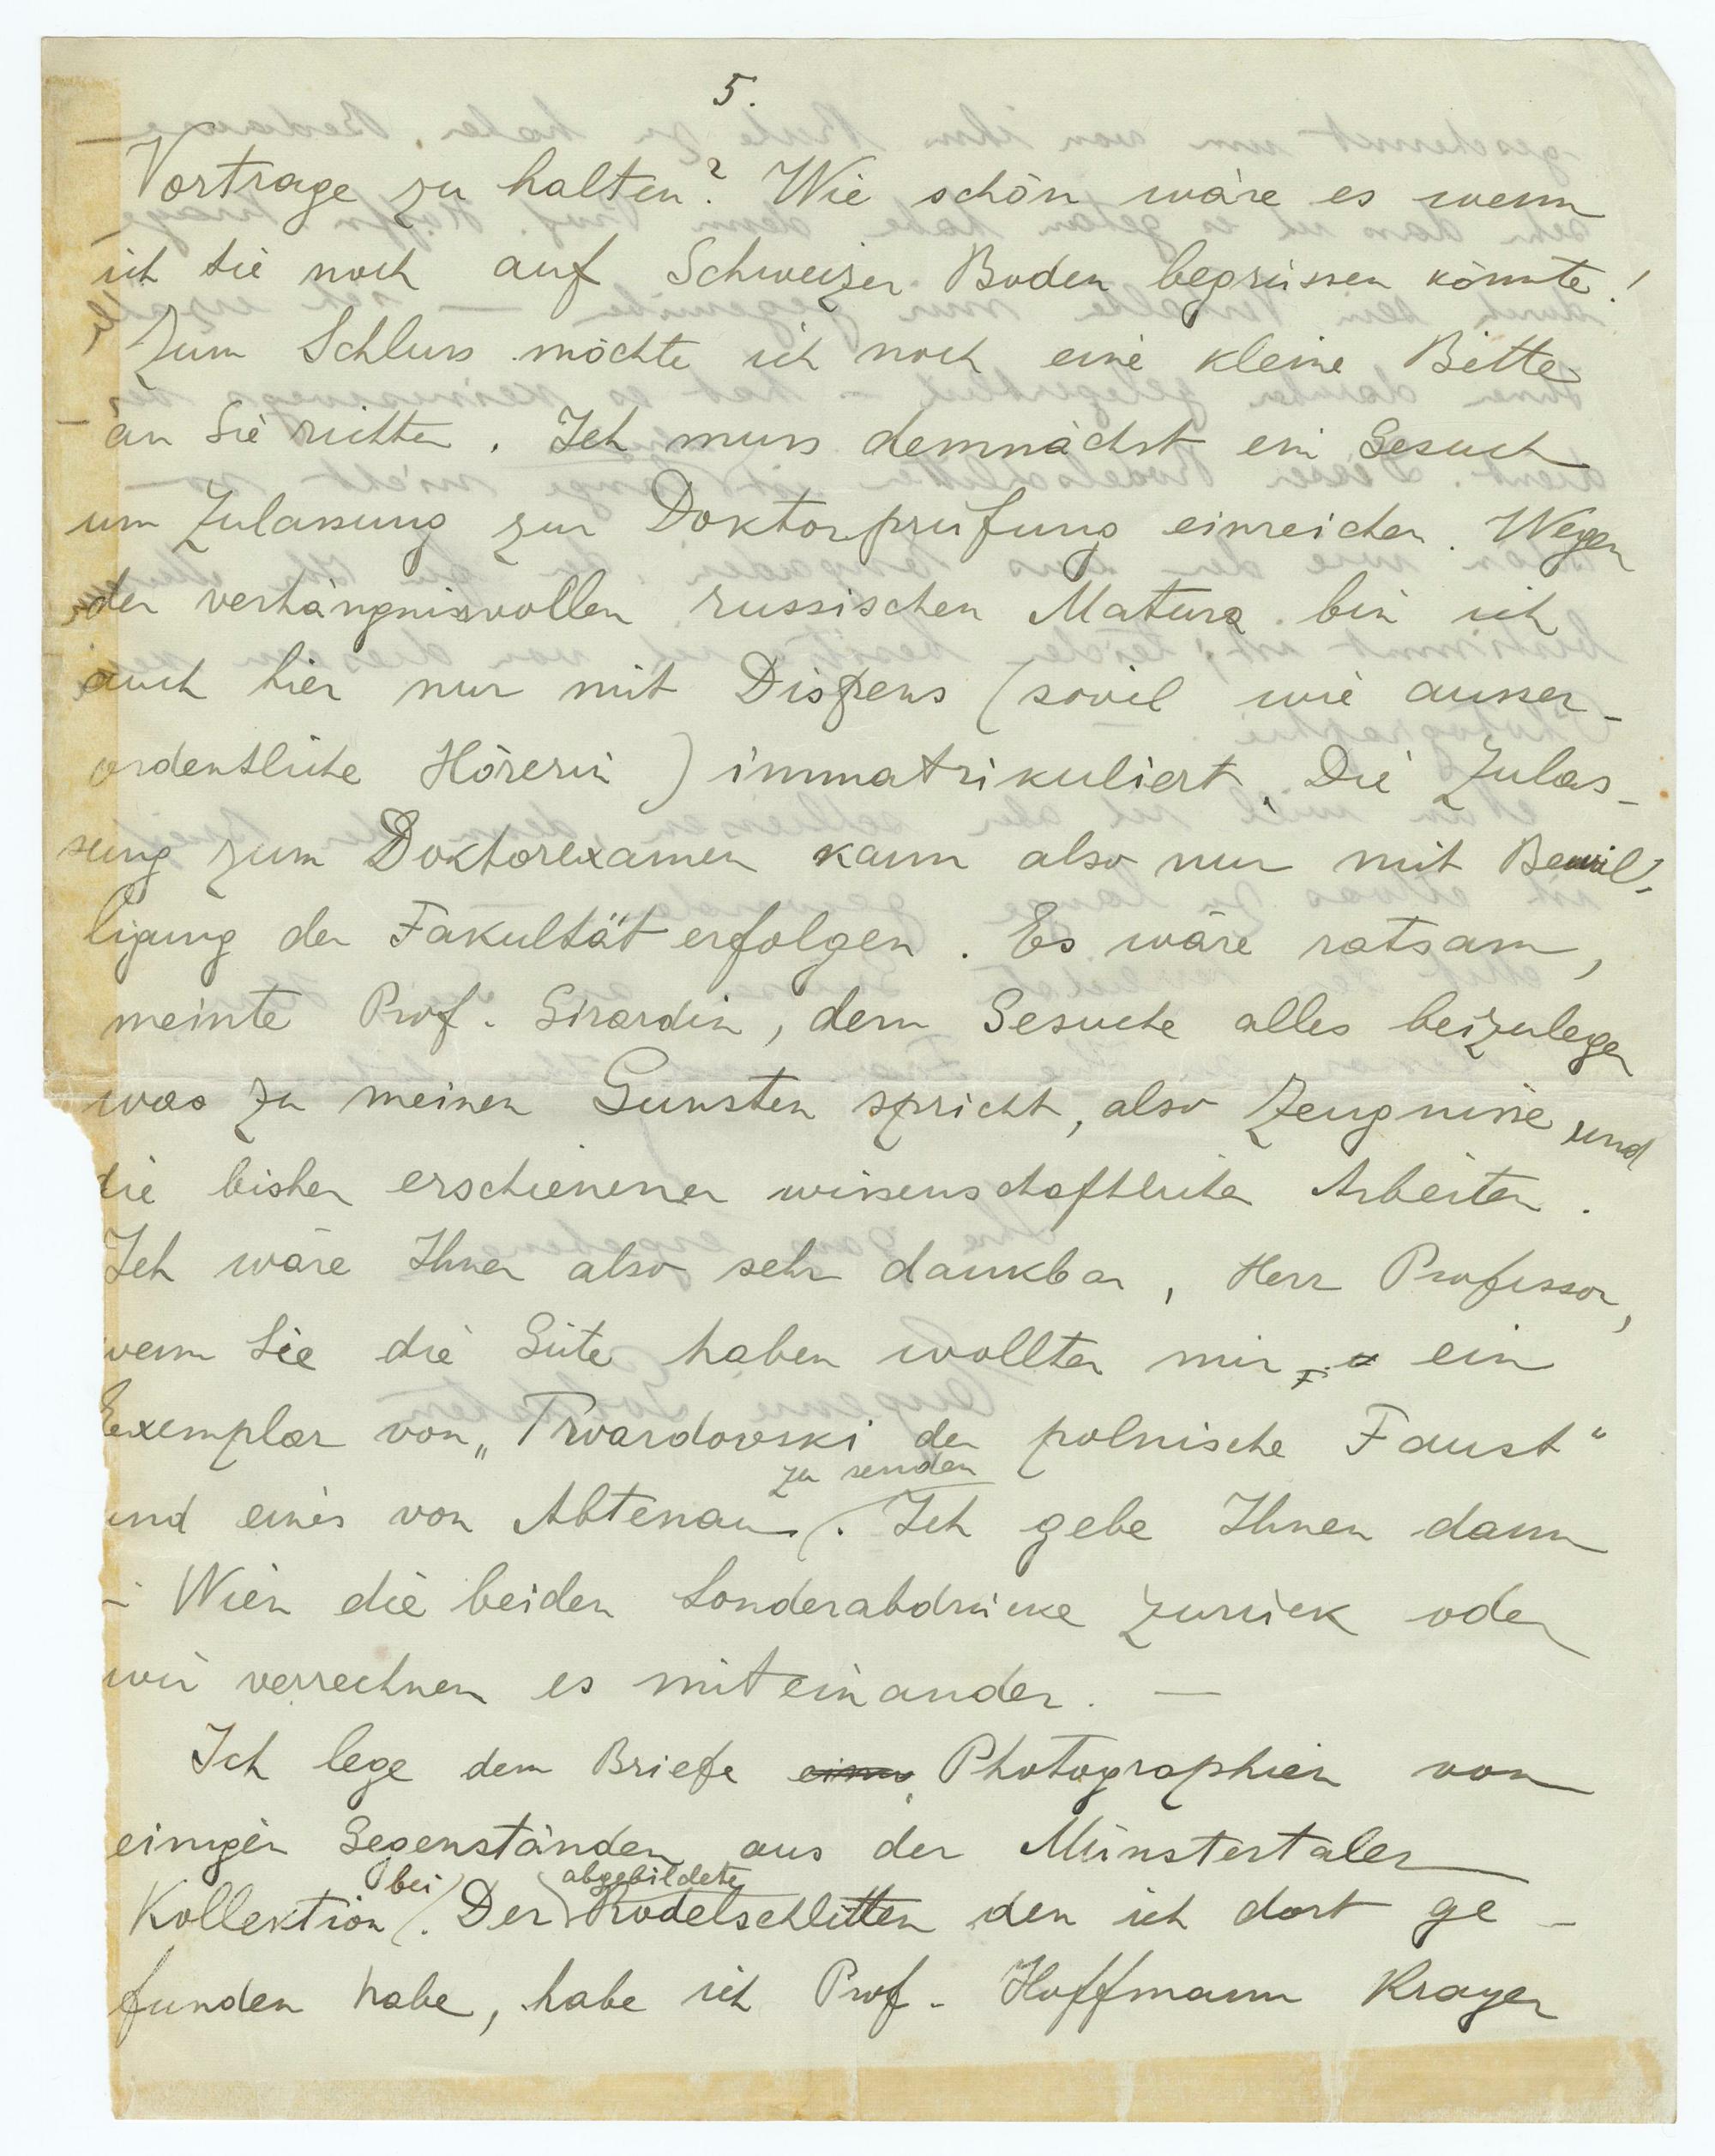 5.
Vortrage zu halten? Wie schön wäre es wenn
ich Sie noch auf Schweizer Boden begrüssen könnte!
Zum Schluss möchte ich noch eine kleine Bitte
an Sie richten. Ich muss demnächst ein Gesuch
um Zulassung zur Doktorprüfung einreichen. Wegen
der verhängnisvollen russischen Matura bin ich
auch hier nur mit Dispens (sovil wie ausser-
ordentliche Hörerin) immatrikuliert. Die Zulas-
sung zum Doktorexamen kann also nur mit Bewil-
ligung der Fakultät erfolgen. Es wäre ratsam,
meinte Prof. Girardin, dem Gesuche alles beizulegen
was zu meinen Gunsten spricht, also Zeugnisse und
die bisher erschienenen wissenschaftlichen Arbeiten.
Ich wäre Ihnen also sehr dankbar, Herr Professor,
wenn Sie die Güte haben wollten mir ein
Exemplar von „Twardowski der polnische Faust“
zu senden
und eines von Abtenau. Ich gebe Ihnen dann
in Wien die beiden Sonderabdrücke zurück oder
wir verrechnen es miteinander. —
Ich lege dem Briefe Photographien von
einigen Gegenständen aus der Münstertaler
bei abgebildete
Kollektion. Der Rodelschlitten den ich dort ge-
funden habe, habe ich Prof. Hoffmann Krayer